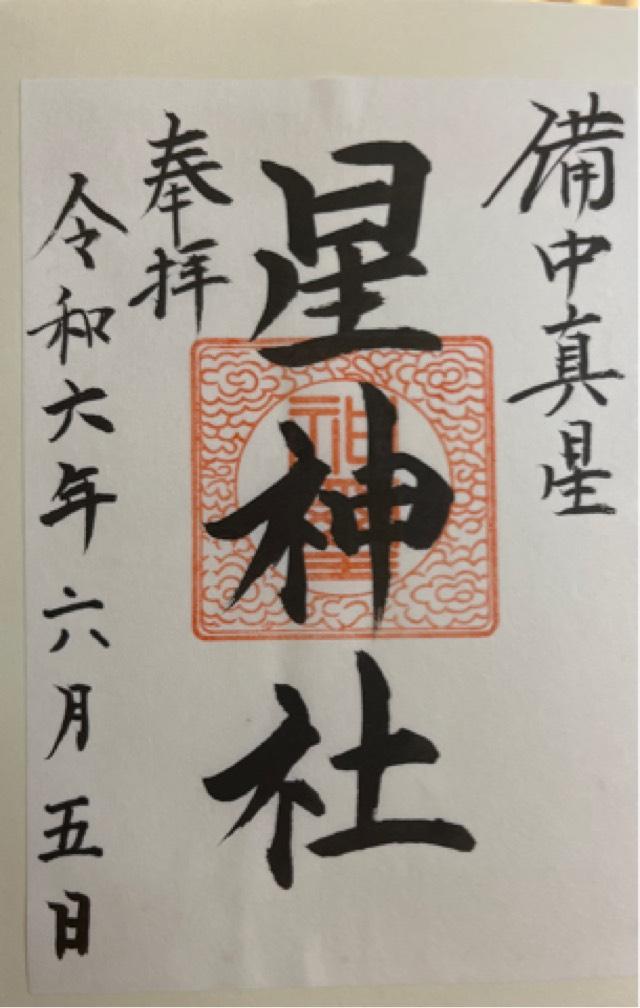 備中真星
星神社
奉拝
令和六年六月五日